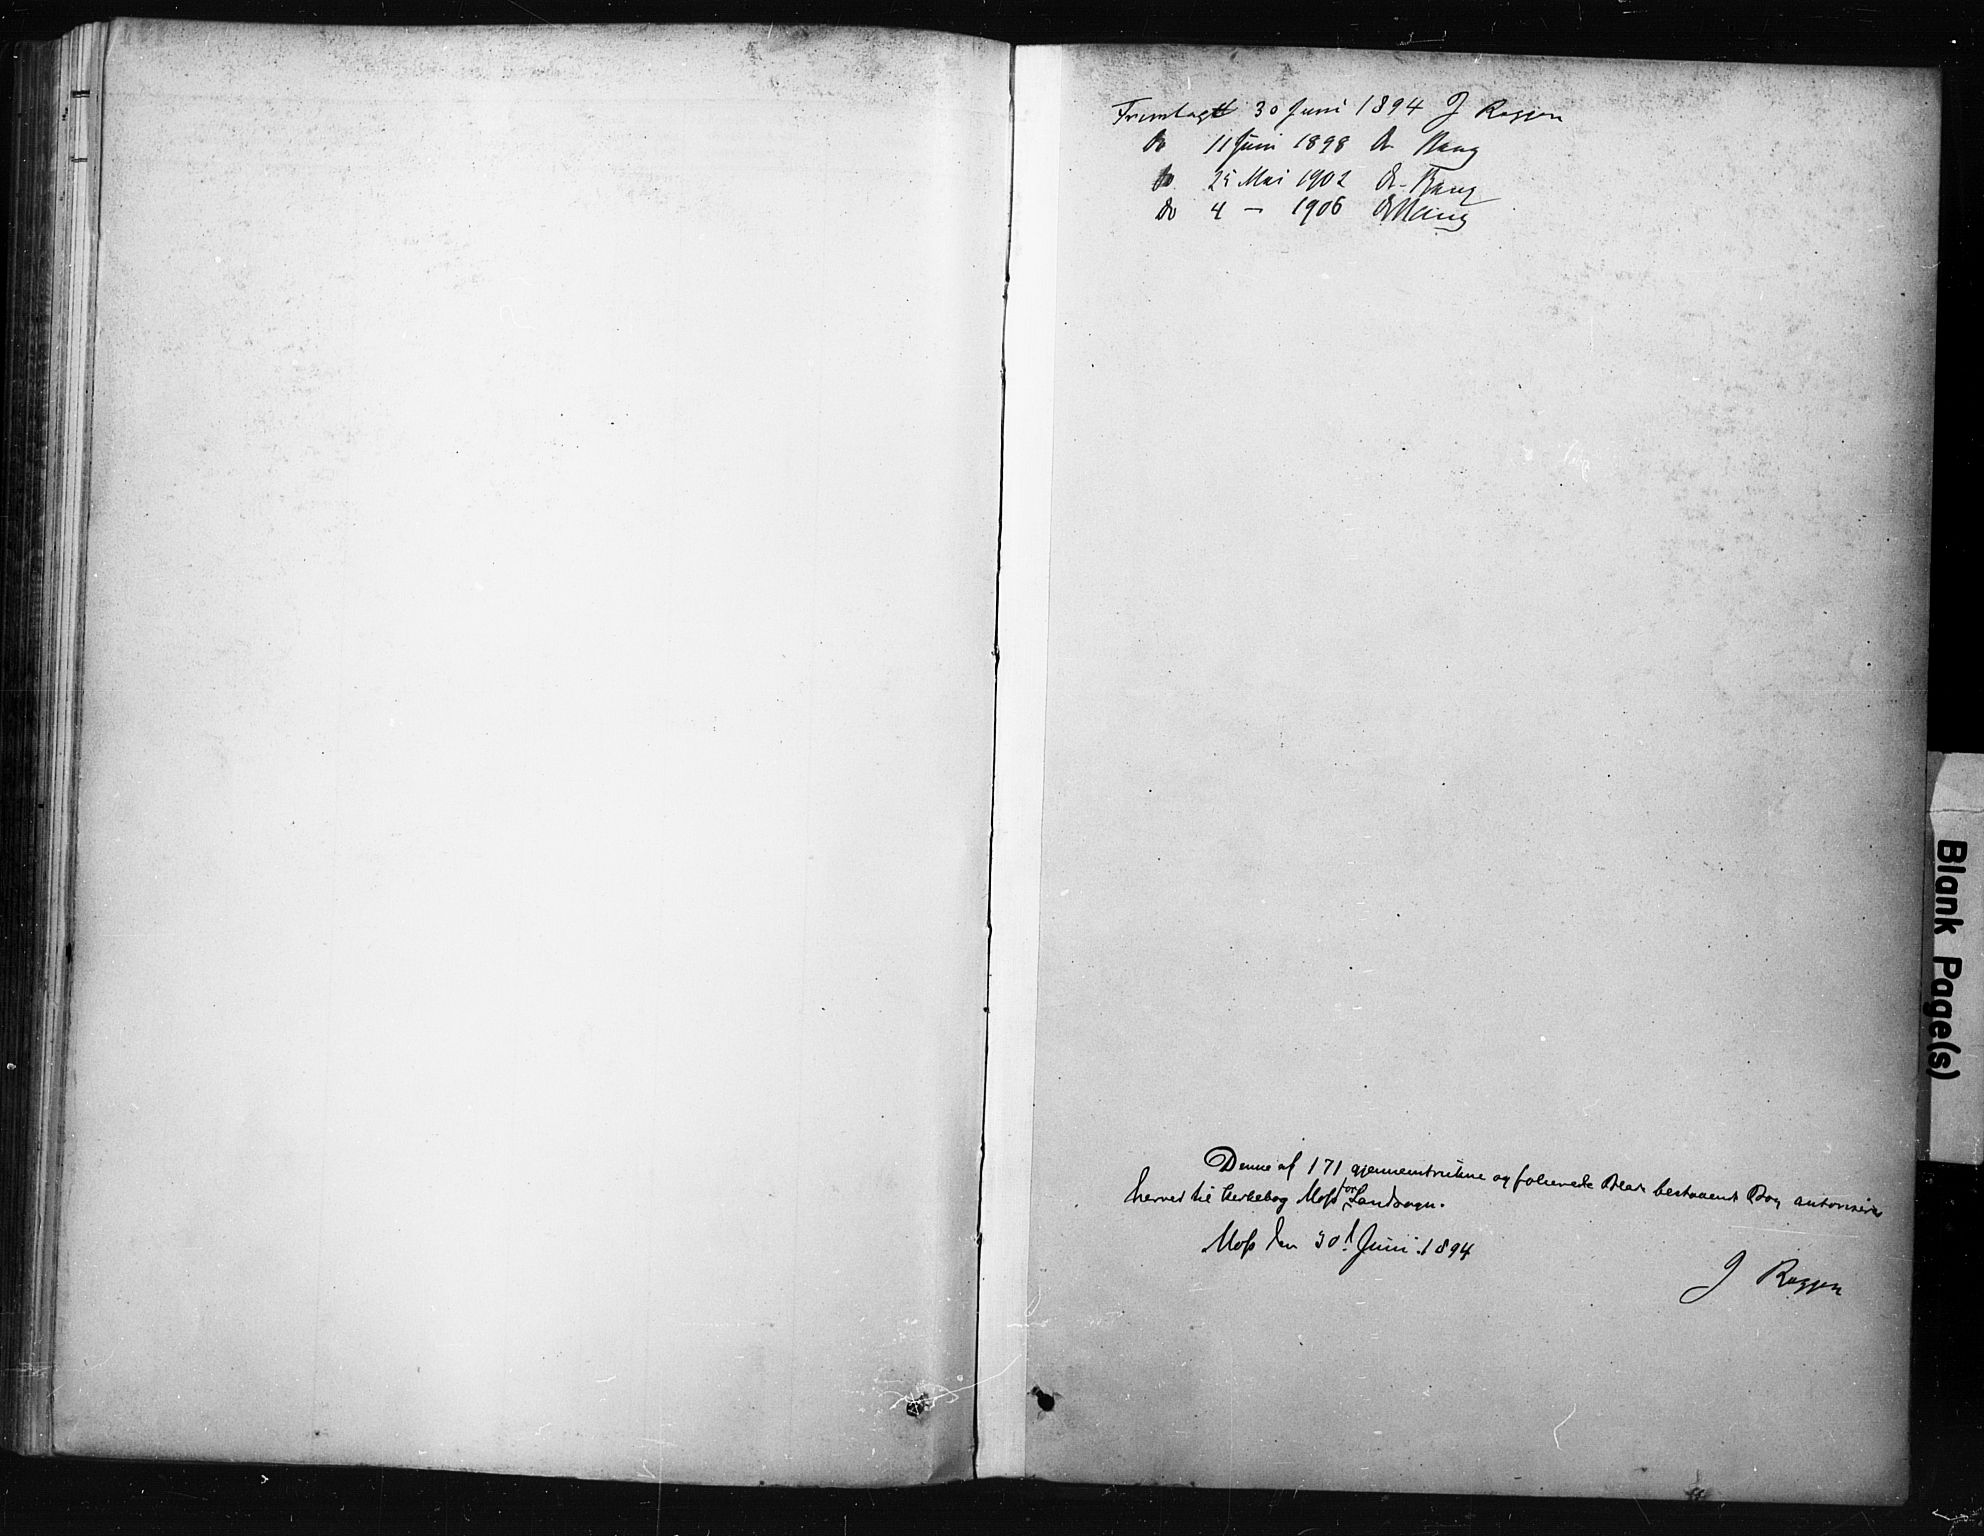 Fremlagt 30 Juni 1894 J Roggen
do 11 Juni 1898 A. Bang
do 25 Mai 1902 A. Bang
do 4 — 1906 A Bang
Denne af 171 gjennemtrukne og folierede Blade bestaaende Bog autoriseres
herved til Kirkebog for Moss Landsogn.
Moss den 30te Juni 1894
J Roggen
Blank Page(s)